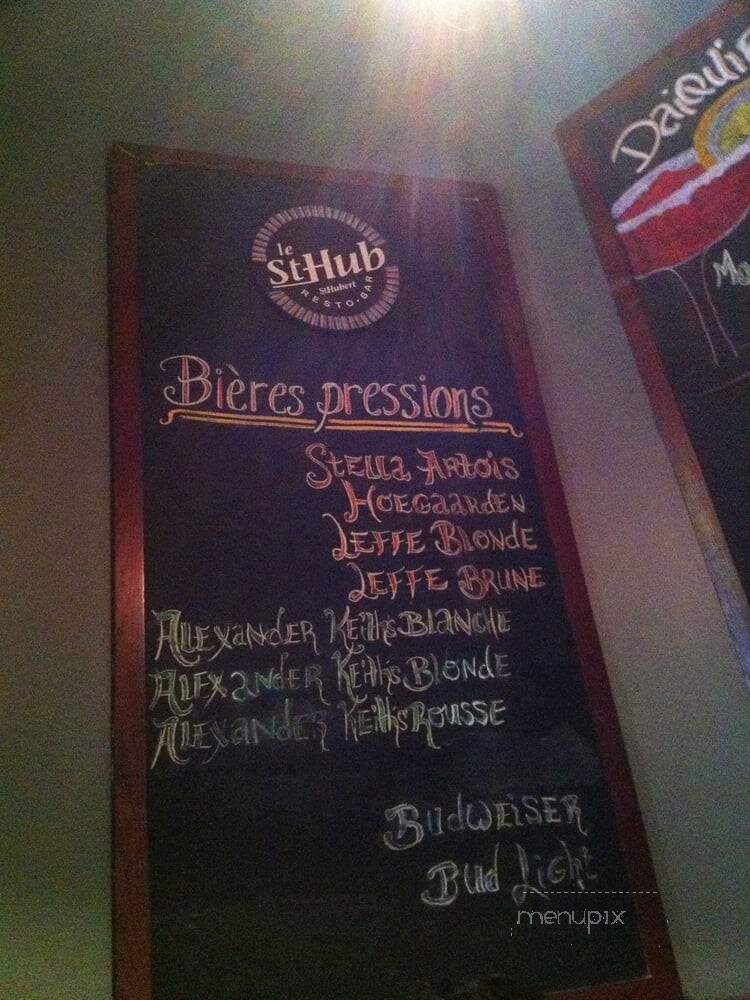 le
StHub
StHubert
RESTO-BAR
Bières pressions
Stella Artois
Hoegaarden
Leffe Blonde
Leffe Brune
Alexander Keith's Blanche
Alexander Keith's Blonde
Alexander Keith's Rousse
Budweiser
Bud Light
menupix